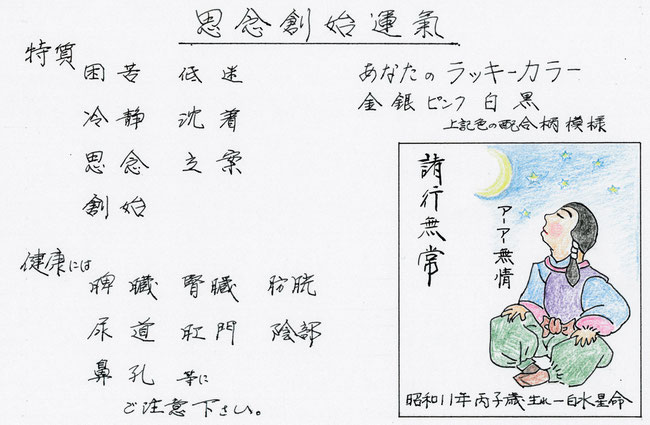 思念創始運氣
特質
困苦 低迷
冷静 沈着
思念 立案
創始
あなたのラッキーカラー
金銀ピンク白黒
上記色の配合柄模様
諸行無常
アーア無情
昭和11年丙子歳生れ一白水星命
健康には
脾臓 腎臓 膀胱
尿道 肛門 陰部
鼻孔 等に
ご注意下さい。